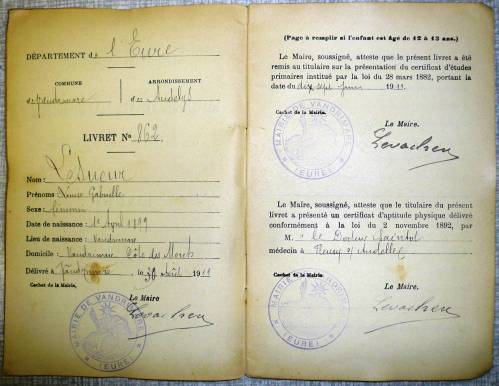 DÉPARTEMENT de l'Eure
COMMUNE
ARRONDISSEMENT
de Vandrimare
des Andelys
LIVRET No 862
Nom : Lesueur
Prénoms Gabrielle
Sexe : féminin
Date de naissance : 1er Avril 1899
Lieu de naissance : Vandrimare
Domicile : Vandrimare Côte des Monts
Délivré à Vandrimare le 30 août 1911
Cachet de la Mairie.
Le Maire
Levacher
MAIRIE DE VANDRIMARE
(EURE)
(Page à remplir si l'enfant est âgé de 12 à 13 ans.)
Le Maire, soussigné, atteste que le présent livret a été
remis au titulaire sur la présentation du certificat d'études
primaires institué par la loi du 28 mars 1882, portant la
date du dix sept juin 1911.
Cachet de la Mairie.
Le Maire.
MAIRIE DE VANDRIMARE
(EURE)
Levacher
Le Maire, soussigné, atteste que le titulaire du présent
livret a présenté un certificat d'aptitude physique délivré
conformément à la loi du 2 novembre 1892, par
M. le Docteur
médecin à Fleury s/ Andelle
Cachet de la Mairie.
Le Maire.
MAIRIE DE VANDRIMARE
(EURE)
Levacher